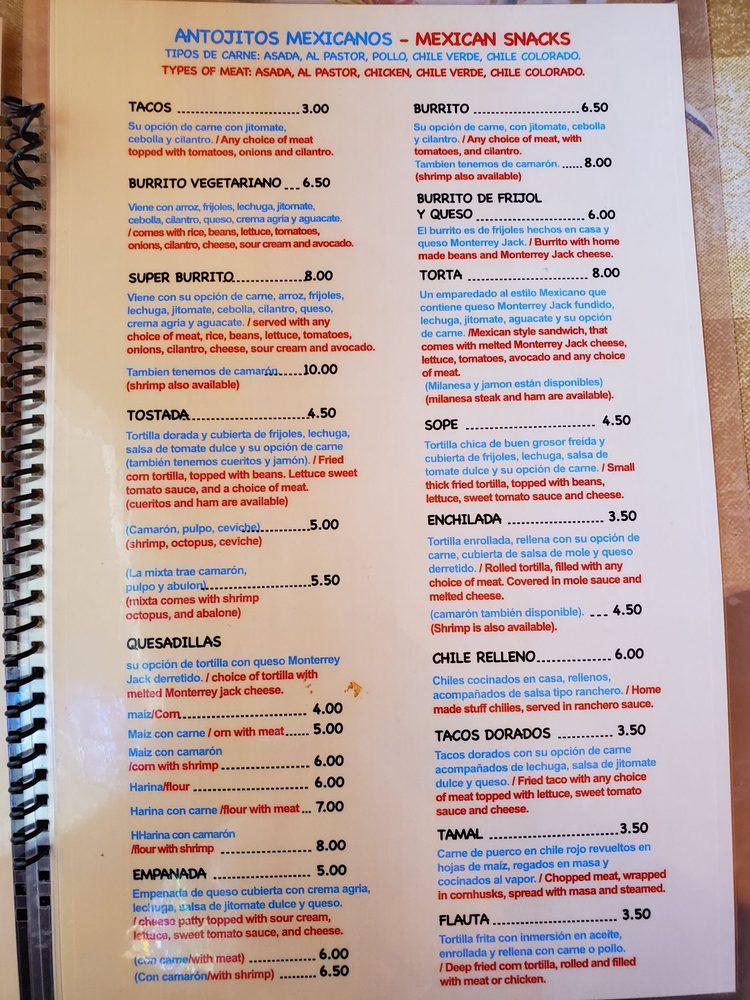 ANTOJITOS MEXICANOS - MEXICAN SNACKS
TIPOS DE CARNE: ASADA, AL PASTOR, POLLO, CHILE VERDE, CHILE COLORADO.
TYPES OF MEAT: ASADA, AL PASTOR, CHICKEN, CHILE VERDE, CHILE COLORADO.
TACOS ........................ 3.00
Su opción de carne con jitomate,
cebolla y cilantro. / Any choice of meat
topped with tomatoes, onions and cilantro.
BURRITO VEGETARIANO ... 6.50
Viene con arroz, frijoles, lechuga, jitomate,
cebolla, cilantro, queso, crema agria y aguacate.
/ comes with rice, beans, lettuce, tomatoes,
onions, cilantro, cheese, sour cream and avocado.
SUPER BURRITO ............... 8.00
Viene con su opción de carne, arroz, frijoles,
lechuga, jitomate, cebolla, cilantro, queso,
crema agria y aguacate. / served with any
choice of meat, rice, beans, lettuce, tomatoes,
onions, cilantro, cheese, sour cream and avocado.
Tambien tenemos de camarón ....... 10.00
(shrimp also available)
TOSTADA ....................... 4.50
Tortilla dorada y cubierta de frijoles, lechuga,
salsa de tomate dulce y su opción de carne
(también tenemos cueritos y jamón). / Fried
corn tortilla, topped with beans. Lettuce sweet
tomato sauce, and a choice of meat.
(cueritos and ham are available)
(Camarón, pulpo, ceviche) ........... 5.00
(shrimp, octopus, ceviche)
(La mixta trae camarón,
pulpo y abulon) .................... 5.50
(mixta comes with shrimp
octopus, and abalone)
QUESADILLAS
su opción de tortilla con queso Monterrey
Jack derretido. / choice of tortilla with
melted Monterrey jack cheese.
maiz/Corn ........................ 4.00
Maiz con carne / orn with meat ..... 5.00
Maiz con camarón
/corn with shrimp ................. 6.00
Harina/flour ...................... 6.00
Harina con carne /flour with meat ... 7.00
HHarina con camarón
/flour with shrimp .................. 8.00
EMPANADA .................... 5.00
Empanada de queso cubierta con crema agria,
lechuga, salsa de jitomate dulce y queso.
/ cheese patty topped with sour cream,
lettuce, sweet tomato sauce, and cheese.
(con carne/with meat) ............. 6.00
(Con camarón/with shrimp) ........ 6.50
BURRITO .................... 6.50
Su opción de carne, con jitomate, cebolla
y cilantro. / Any choice of meat, with
tomatoes, and cilantro.
Tambien tenemos de camarón. ..... 8.00
(shrimp also available)
BURRITO DE FRIJOL
Y QUESO .................... 6.00
El burrito es de frijoles hechos en casa y
queso Monterrey Jack. / Burrito with home
made beans and Monterrey Jack cheese.
TORTA ....................... 8.00
Un emparedado al estilo Mexicano que
contiene queso Monterrey Jack fundido,
lechuga, jitomate, aguacate y su opción
de carne. /Mexican style sandwich, that
comes with melted Monterrey Jack cheese,
lettuce, tomatoes, avocado and any choice
of meat.
(Milanesa y jamon están disponibles)
(milanesa steak and ham are available).
SOPE ........................ 4.50
Tortilla chica de buen grosor freída y
cubierta de frijoles, lechuga, salsa de
tomate dulce y su opción de carne. / Small
thick fried tortilla, topped with beans,
lettuce, sweet tomato sauce and cheese.
ENCHILADA .................. 3.50
Tortilla enrollada, rellena con su opción de
carne, cubierta de salsa de mole y queso
derretido. / Rolled tortilla, filled with any
choice of meat. Covered in mole sauce and
melted cheese.
(camarón también disponible). ... 4.50
(Shrimp is also available).
CHILE RELLENO .............. 6.00
Chiles cocinados en casa, rellenos,
acompañados de salsa tipo ranchero. / Home
made stuff chilies, served in ranchero sauce.
TACOS DORADOS .......... 3.50
Tacos dorados con su opción de carne
acompañados de lechuga, salsa de jitomate
dulce y queso. / Fried taco with any choice
of meat topped with lettuce, sweet tomato
sauce and cheese.
TAMAL ........................ 3.50
Carne de puerco en chile rojo revueltos en
hojas de maíz, regados en masa y
cocinados al vapor. / Chopped meat, wrapped
in cornhusks, spread with masa and steamed.
FLAUTA ...................... 3.50
Tortilla frita con inmersión en aceite,
enrollada y rellena con carne o pollo.
/ Deep fried corn tortilla, rolled and filled
with meat or chicken.